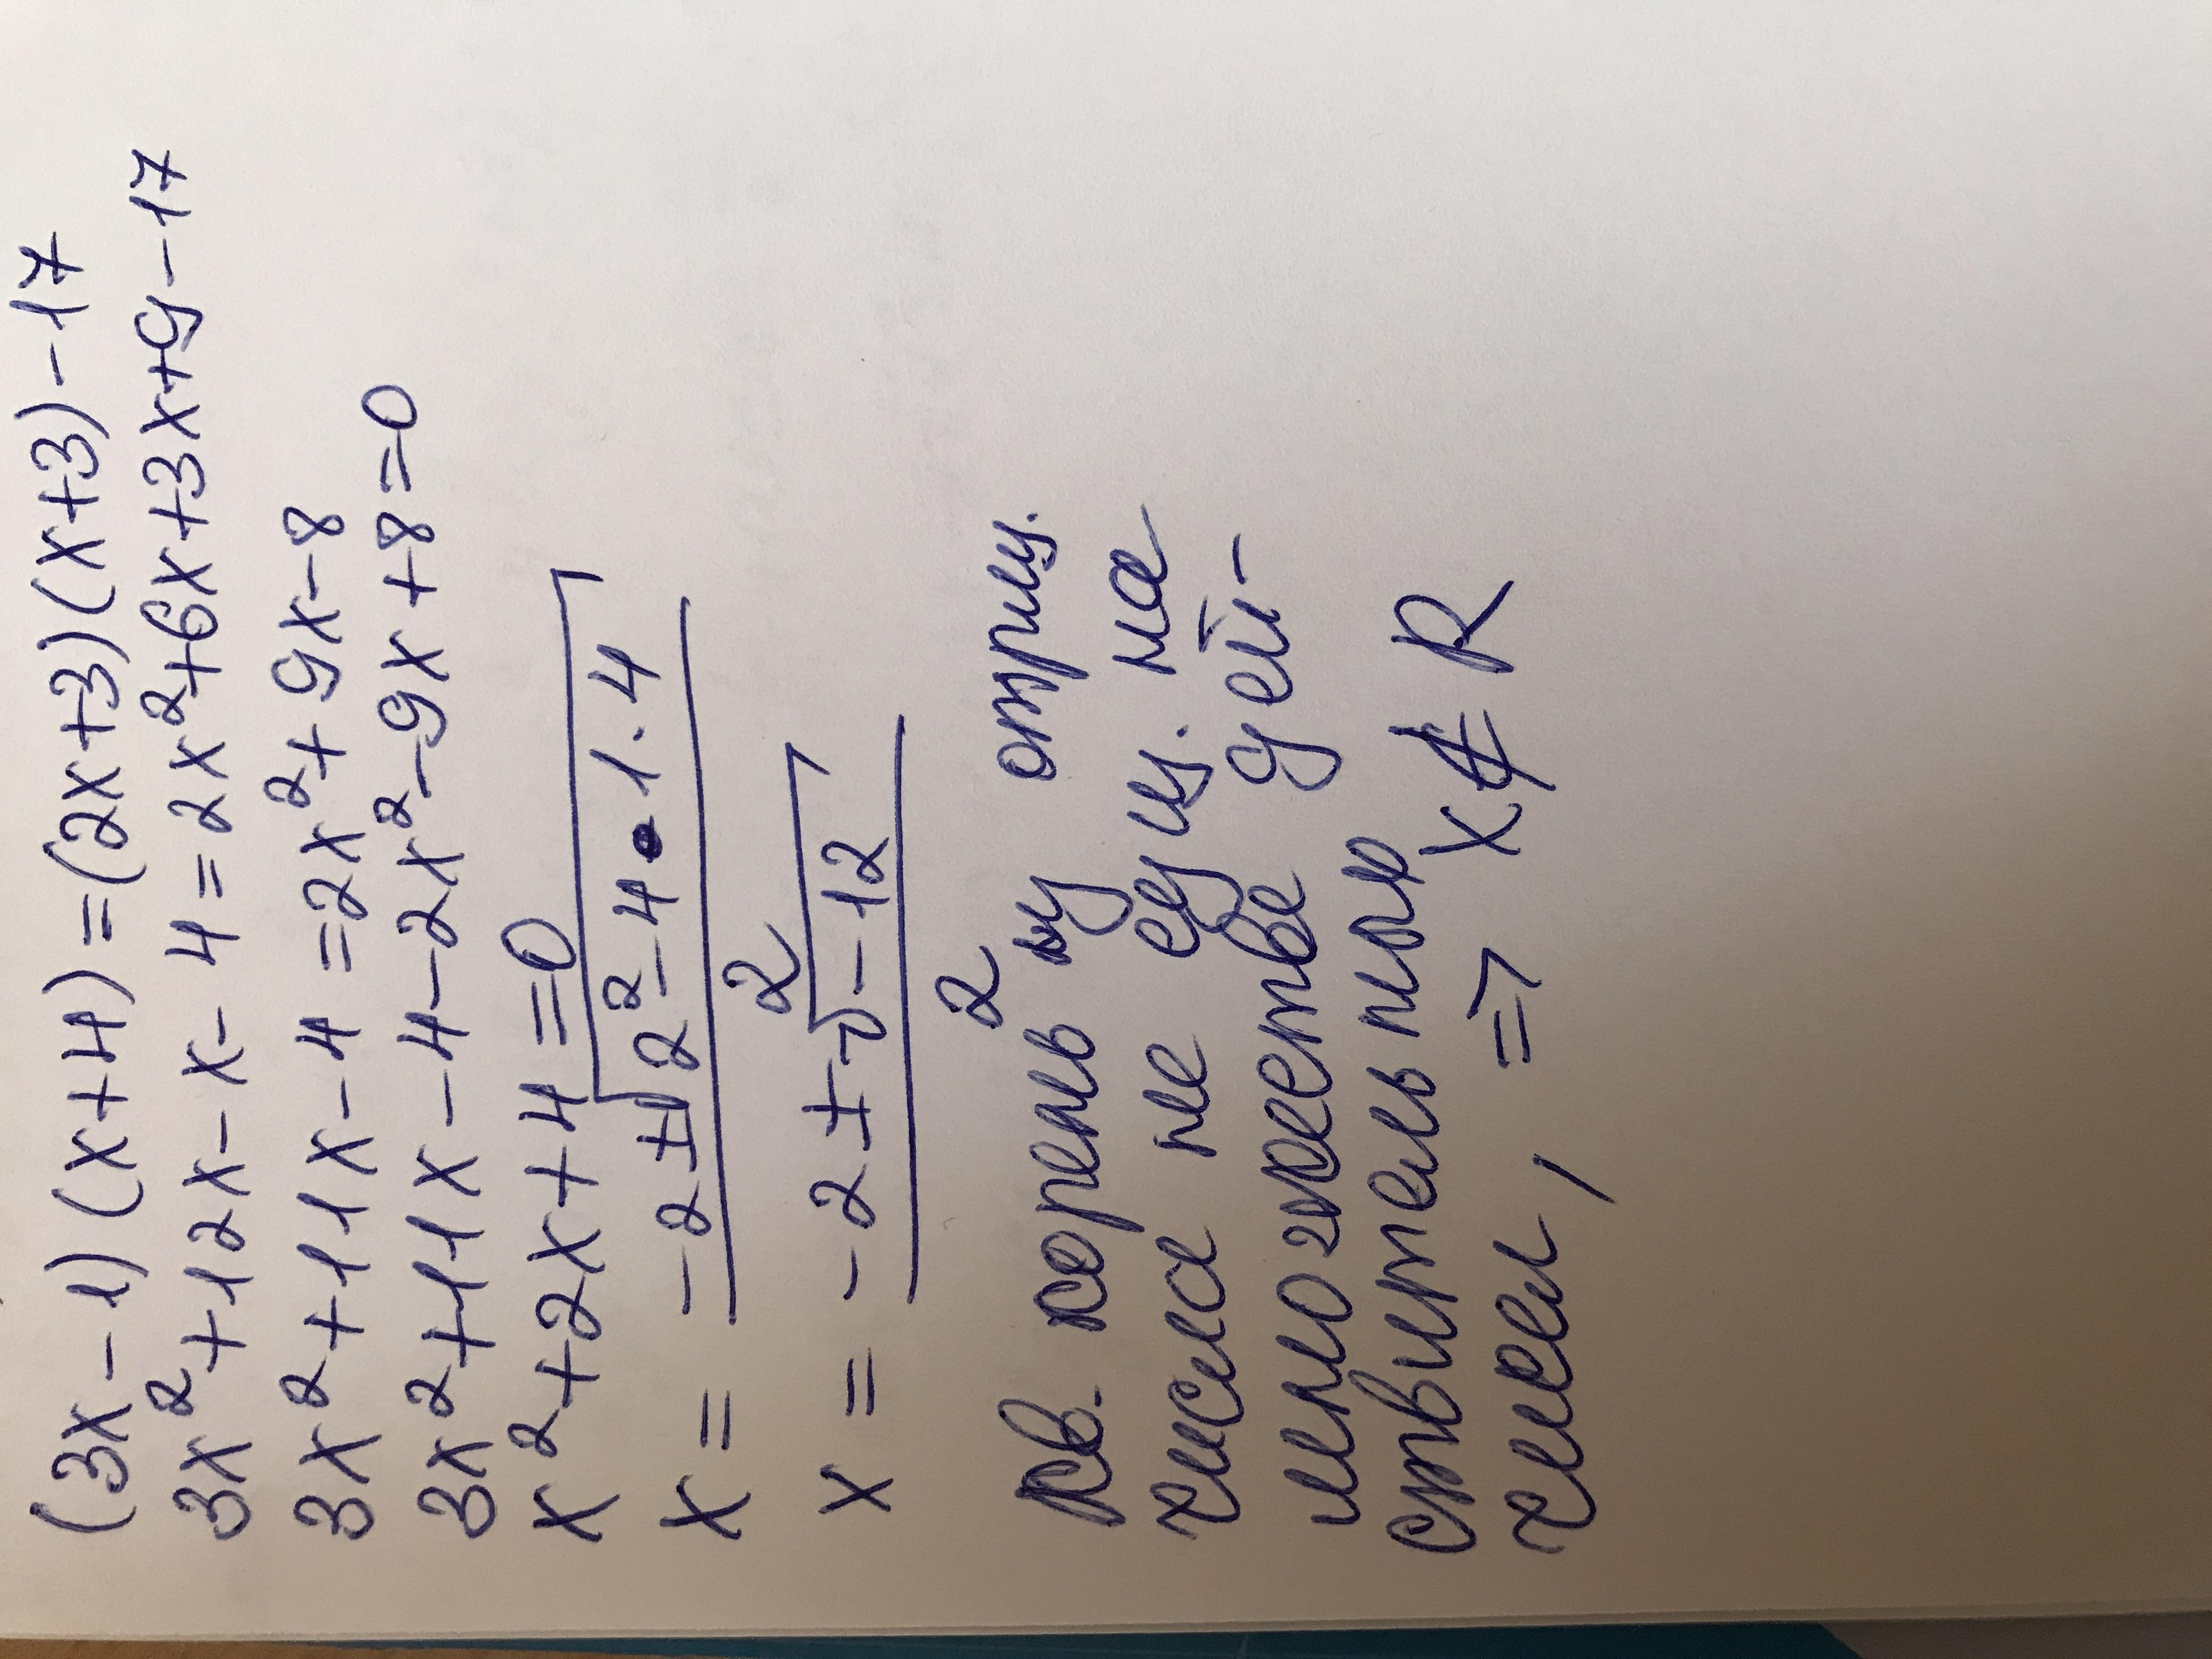 (3x-1)(x+4)=(2x+3)(x+3)-17
3x²+12x-x-4=2x²+6x+3x+9-17
3x²+11x-4=2x²+9x-8
3x²+11x-4-2x²-9x+8=0
x²+2x+4=0
x = -2±√2²-4·1·4
2
x = -2±√-12
2
кв. корень из отриц.
числа не сущ. на
множестве дей-
ствительных
чисел, => x∉R